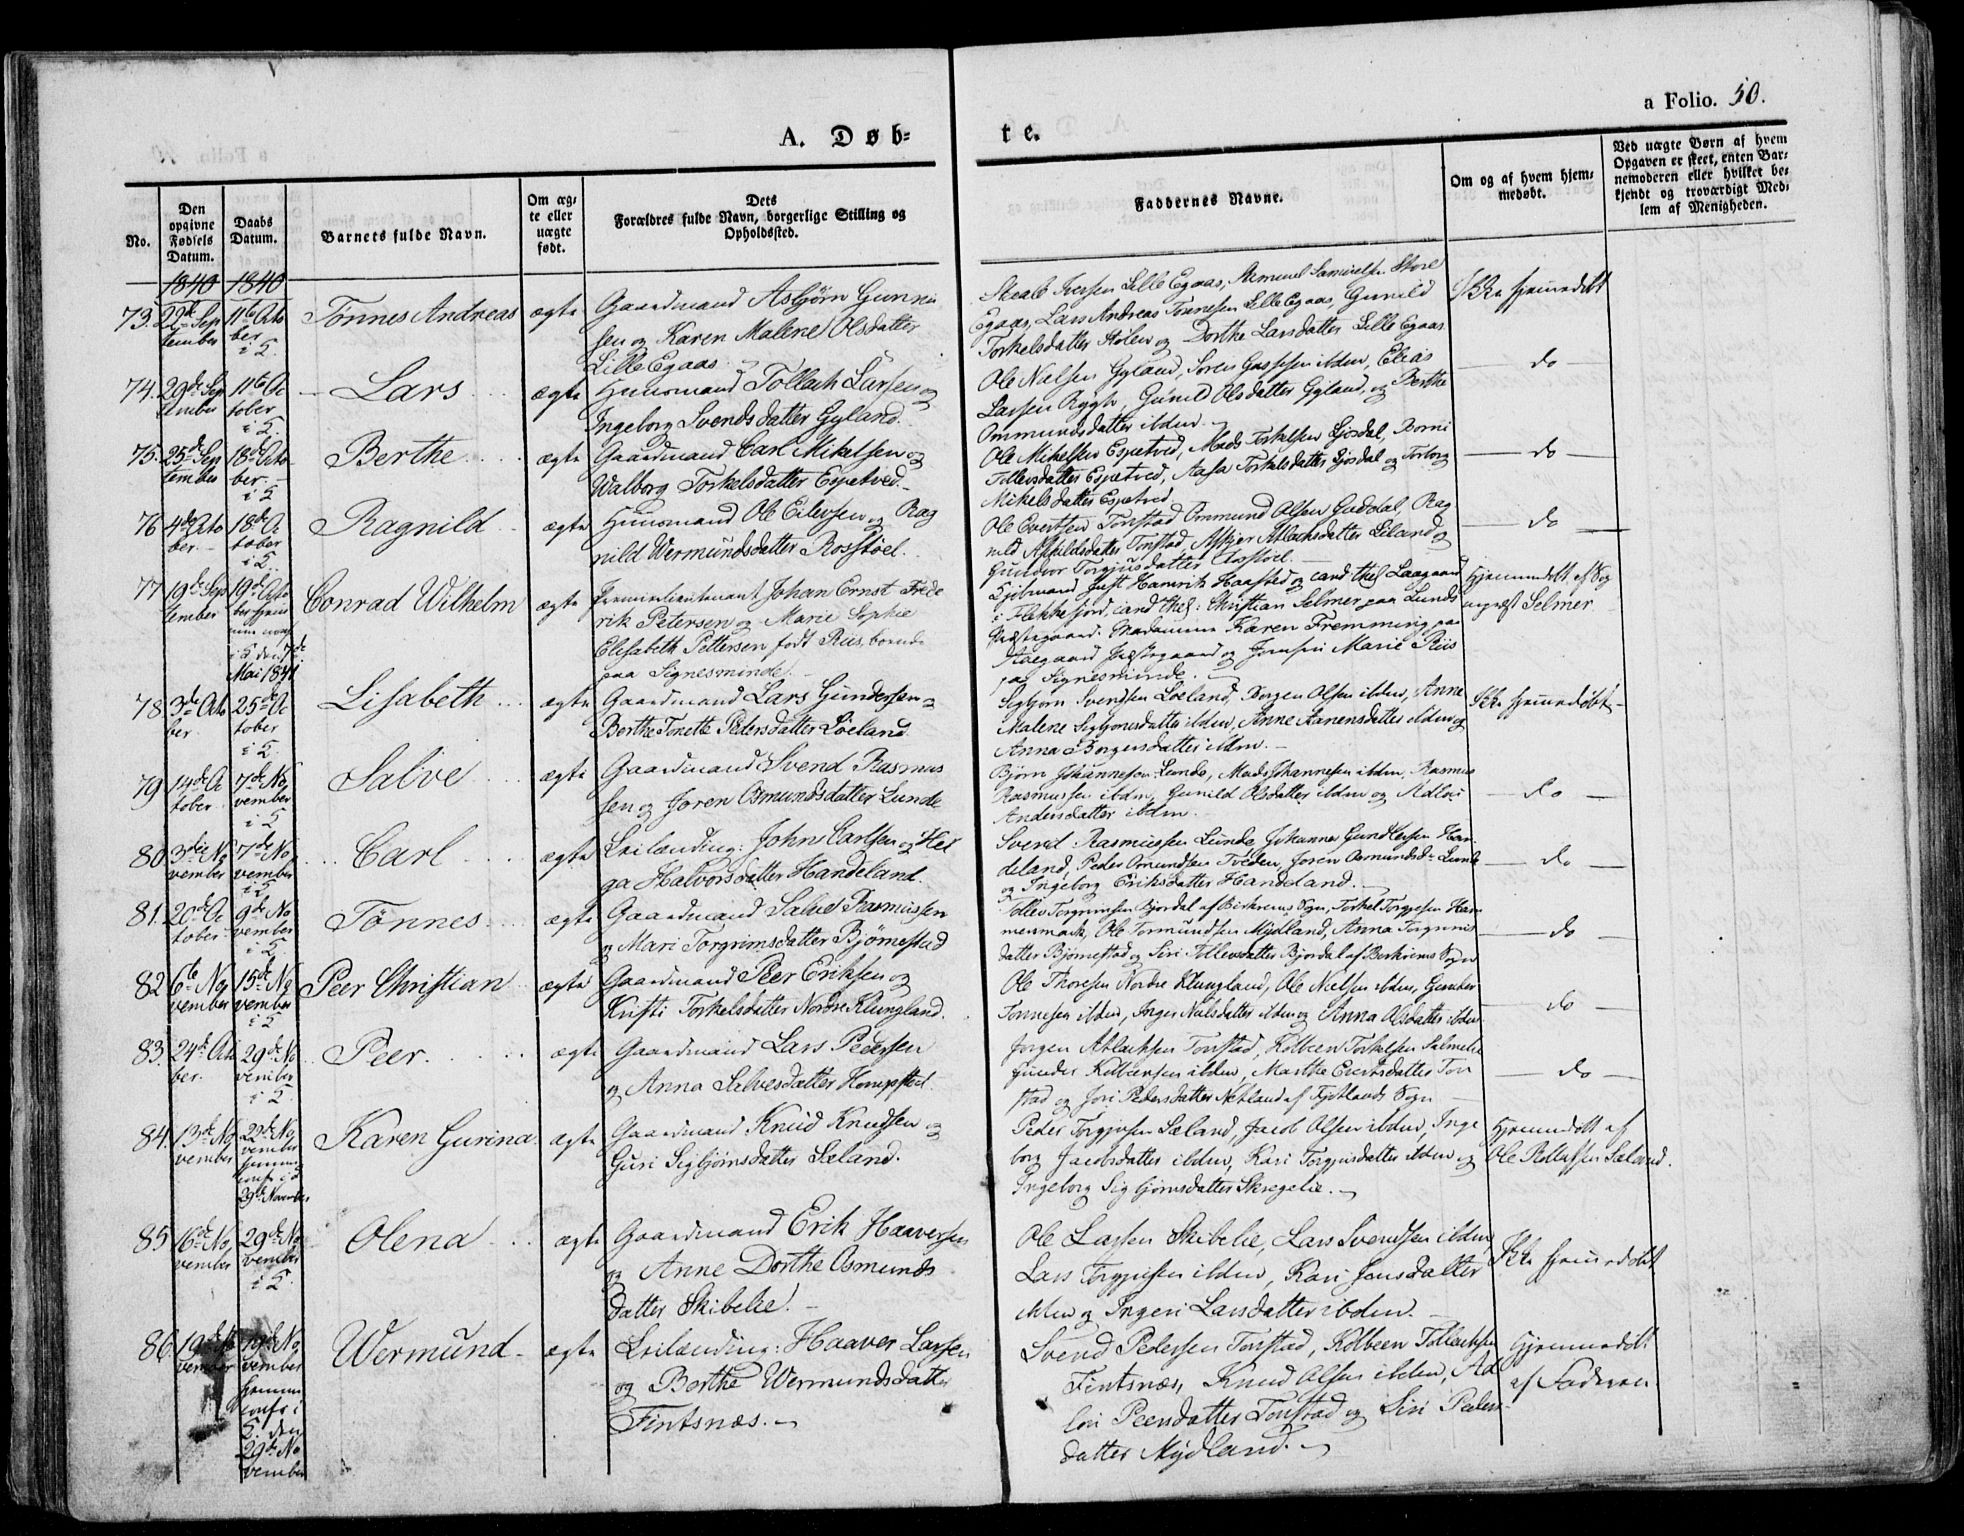 A. Døb-
te.
a Folio. 50.
No.
Den opgivne Fødsels Datum.
Daabs Datum.
Barnets fulde Navn.
Om ægte eller uægte født.
Dets Forældres fulde Navn, borgerlige Stilling og Opholdssted.
Faddernes Navne.
Om og af hvem hjemmedøbt.
Ved uægte Børn af hvem Opgaven er skeet, enten Barnemoderen eller hvilket bekjendt og troværdigt Medlem af Menigheden.
1840 1840
73. 29de September
11te October i K.
Tönnes Andreas
ægte
Gaardmand Asbjørn Gunn
sen og Karen Malene Olsdatter
Lille Egaas
Iversen Lille Egaas, Samuelsen Store
Egaas, Lars Andreas Tønnesen Lille Egaas, Gunild
Torkelsdatter Stolen og Dorthe Larsdatter Lille Egaas
Ikke hjemmedøbt
74. 29de September
11te October i K.
Lars
ægte
Huusmand Tollach Larsen og
Ingeborg Svendsdatter Gyland.
Ole Nielsen Gyland, Søren ibdm, Elias
Larsen Rygh, Gunild Olsdatter Gyland og Berthe
Ommundsdatter ibdm.
do
75. 25de September
18de October i K
Berthe
ægte
Gaardmand Carl Mikelsen og
Walborg Torkelsdatter Espetved.
Ole Mikelsen Espetved, Mads Torkelsen Sjordal,
Tollevsdatter Espetved, Aasa Torkelsdatter Sjordal og Torborg
Mikelsdatter Espetved
do
76 4de October.
18de October i K.
Ragnild
ægte
Huusmand Ole Eilevsen og Rag
nild Wermundsdatter Rosstöel.
Ole Evertsen Tonstad, Ommund Olsen Guddal, Rag
nild Tonstad, Asbjør Atlachsdatter Liland og
Gundvor Torgiusdatter
do
77 19de September
19de October
i K den 7de
Mai 1841
Conrad Wilhelm
ægte
Premierlieutnant Johan Ernst Frede
rik Petersen og Marie Sophie
Elisabeth Pettersen født Riis, boende
paa Signesminde.
Kjøbmand Just Henrik Haasted og cand thel Laagaard
i Flekkefjord, cand thel: Christian Selmer paa Lunds
Præstegaard. Madamme Karen Fremming paa
Præstegaard og Jomfru Marie Riis
paa Signesminde.
Hjemmedøbt af Sog
nepræst Selmer
78 3de October
25de October i K.
Lisabeth
ægte
Gaardmand Lars Gundersen
Berthe Tonette Pedersdatter Löeland
Sigbjørn Svendsen Loeland, Børgen Olsen ibdm, Anne
Malene Sigbjørnsdatter ibdm, Anne Aanensdatter ibdm og
Anna Børgensdatter ibdm.
Ikke hjemmedøbt
79 14de October
7de November i K
Salve
ægte
Gaardmand Svend Rasmus
sen og Joren Osmundsdatter Lunde
Bjørn Johannesen Lunde, Mads Johannesen ibdm, Rasmus
Rasmussen ibdm, Gunild Olsdatter ibdm og Adloi
Andersdatter ibdm.
do
80 3die November
7de November i K
Carl
ægte
Leilænding: John Carlsen og Hel
ga Halvorsdatter Handeland.
Svend Rasmussen Lunde, Johannes Gundersen Han
deland, Peder Omundsen Tveden, Joren Osmundsd- Lunde
og Ingeborg Eriksdatter Handeland.
do
81. 20de October
9de November i K
Tønnes
ægte
Gaardmand Salve Rasmussen
og Mari Torgrimsdatter Bjørnestad
Tollev Torgrimsen Bjordal af Birkrems Sogn, Torkel Torgiesen Ham
menmark, Ole Tormundsen Mydland, Anna Torgrims
datter Bjørnestad og Siri Tollevsdatter Bjordal af Berkrems Sogn
do
82 6te November
15de November i K
Peer Christian
ægte
Gaardmand Peer Eriksen og
Kristi Torkelsdatter Nordre Klungland.
Ole Thoresen Nordre Klungland, Ole Nielsen ibdm,
Tonnesen ibdm, Inger Nielsdatter ibdm og Anna Olsdatter ibdm
do
83. 24de October.
29de November i K.
Peer
ægte
Gaardmand Lars Pedersen
og Anna Salvesdatter Kompstöl.
Jorgen Atlachsen Tonstad, Kolbeen Torkelsen Salmelie
Gunder Kolbensen ibdm, Marthe Evertsdatter Ton
stad og Jori Pedersdatter Netland af Fjotlands Sogn
do
84. 13de November
22de November
29de November
Karen Gurina
ægte
Gaardmand Knud Knudsen og
Guri Sigbjørnsdatter Sæland.
Peder Torgiusen Sæland, Jacob Olsen ibdm, Inge
borg Jacobsdatter ibdm, Kari Torgiusdatter ibdm og
Ingeborg Sigbjørnsdatter Skregelie.
Hjemmedøbt af
Ole Rollufsen Sæland.
85 16de November
29de November i K.
Olena
ægte
Gaardmand Erik Haaversen
og Anne Dorthe Osmunds
datter Skibelie.
Ole Larsen Skibelie, Lars Svendsen ibdm,
Lars Torgiusen ibdm, Kari Jonsdatter
ibdm og Ingeri Larsdatter ibdm.
Ikke hjemmedøbt
86. 19de November
19de November
hjemme
i
K. den
29de No
vember
Wermund
ægte
Leilænding: Haaver Larsen
og Berthe Wermundsdatter
Fintsnæs.
Svend Pedersen Tonstad, Kolbeen Tollachsen
Fintsnæs, Knud Olsen ibdm, Ad
loi Peersdatter Tonstad og Siri Peders
datter Mydland.
Hjemmedøbt
af Faderen